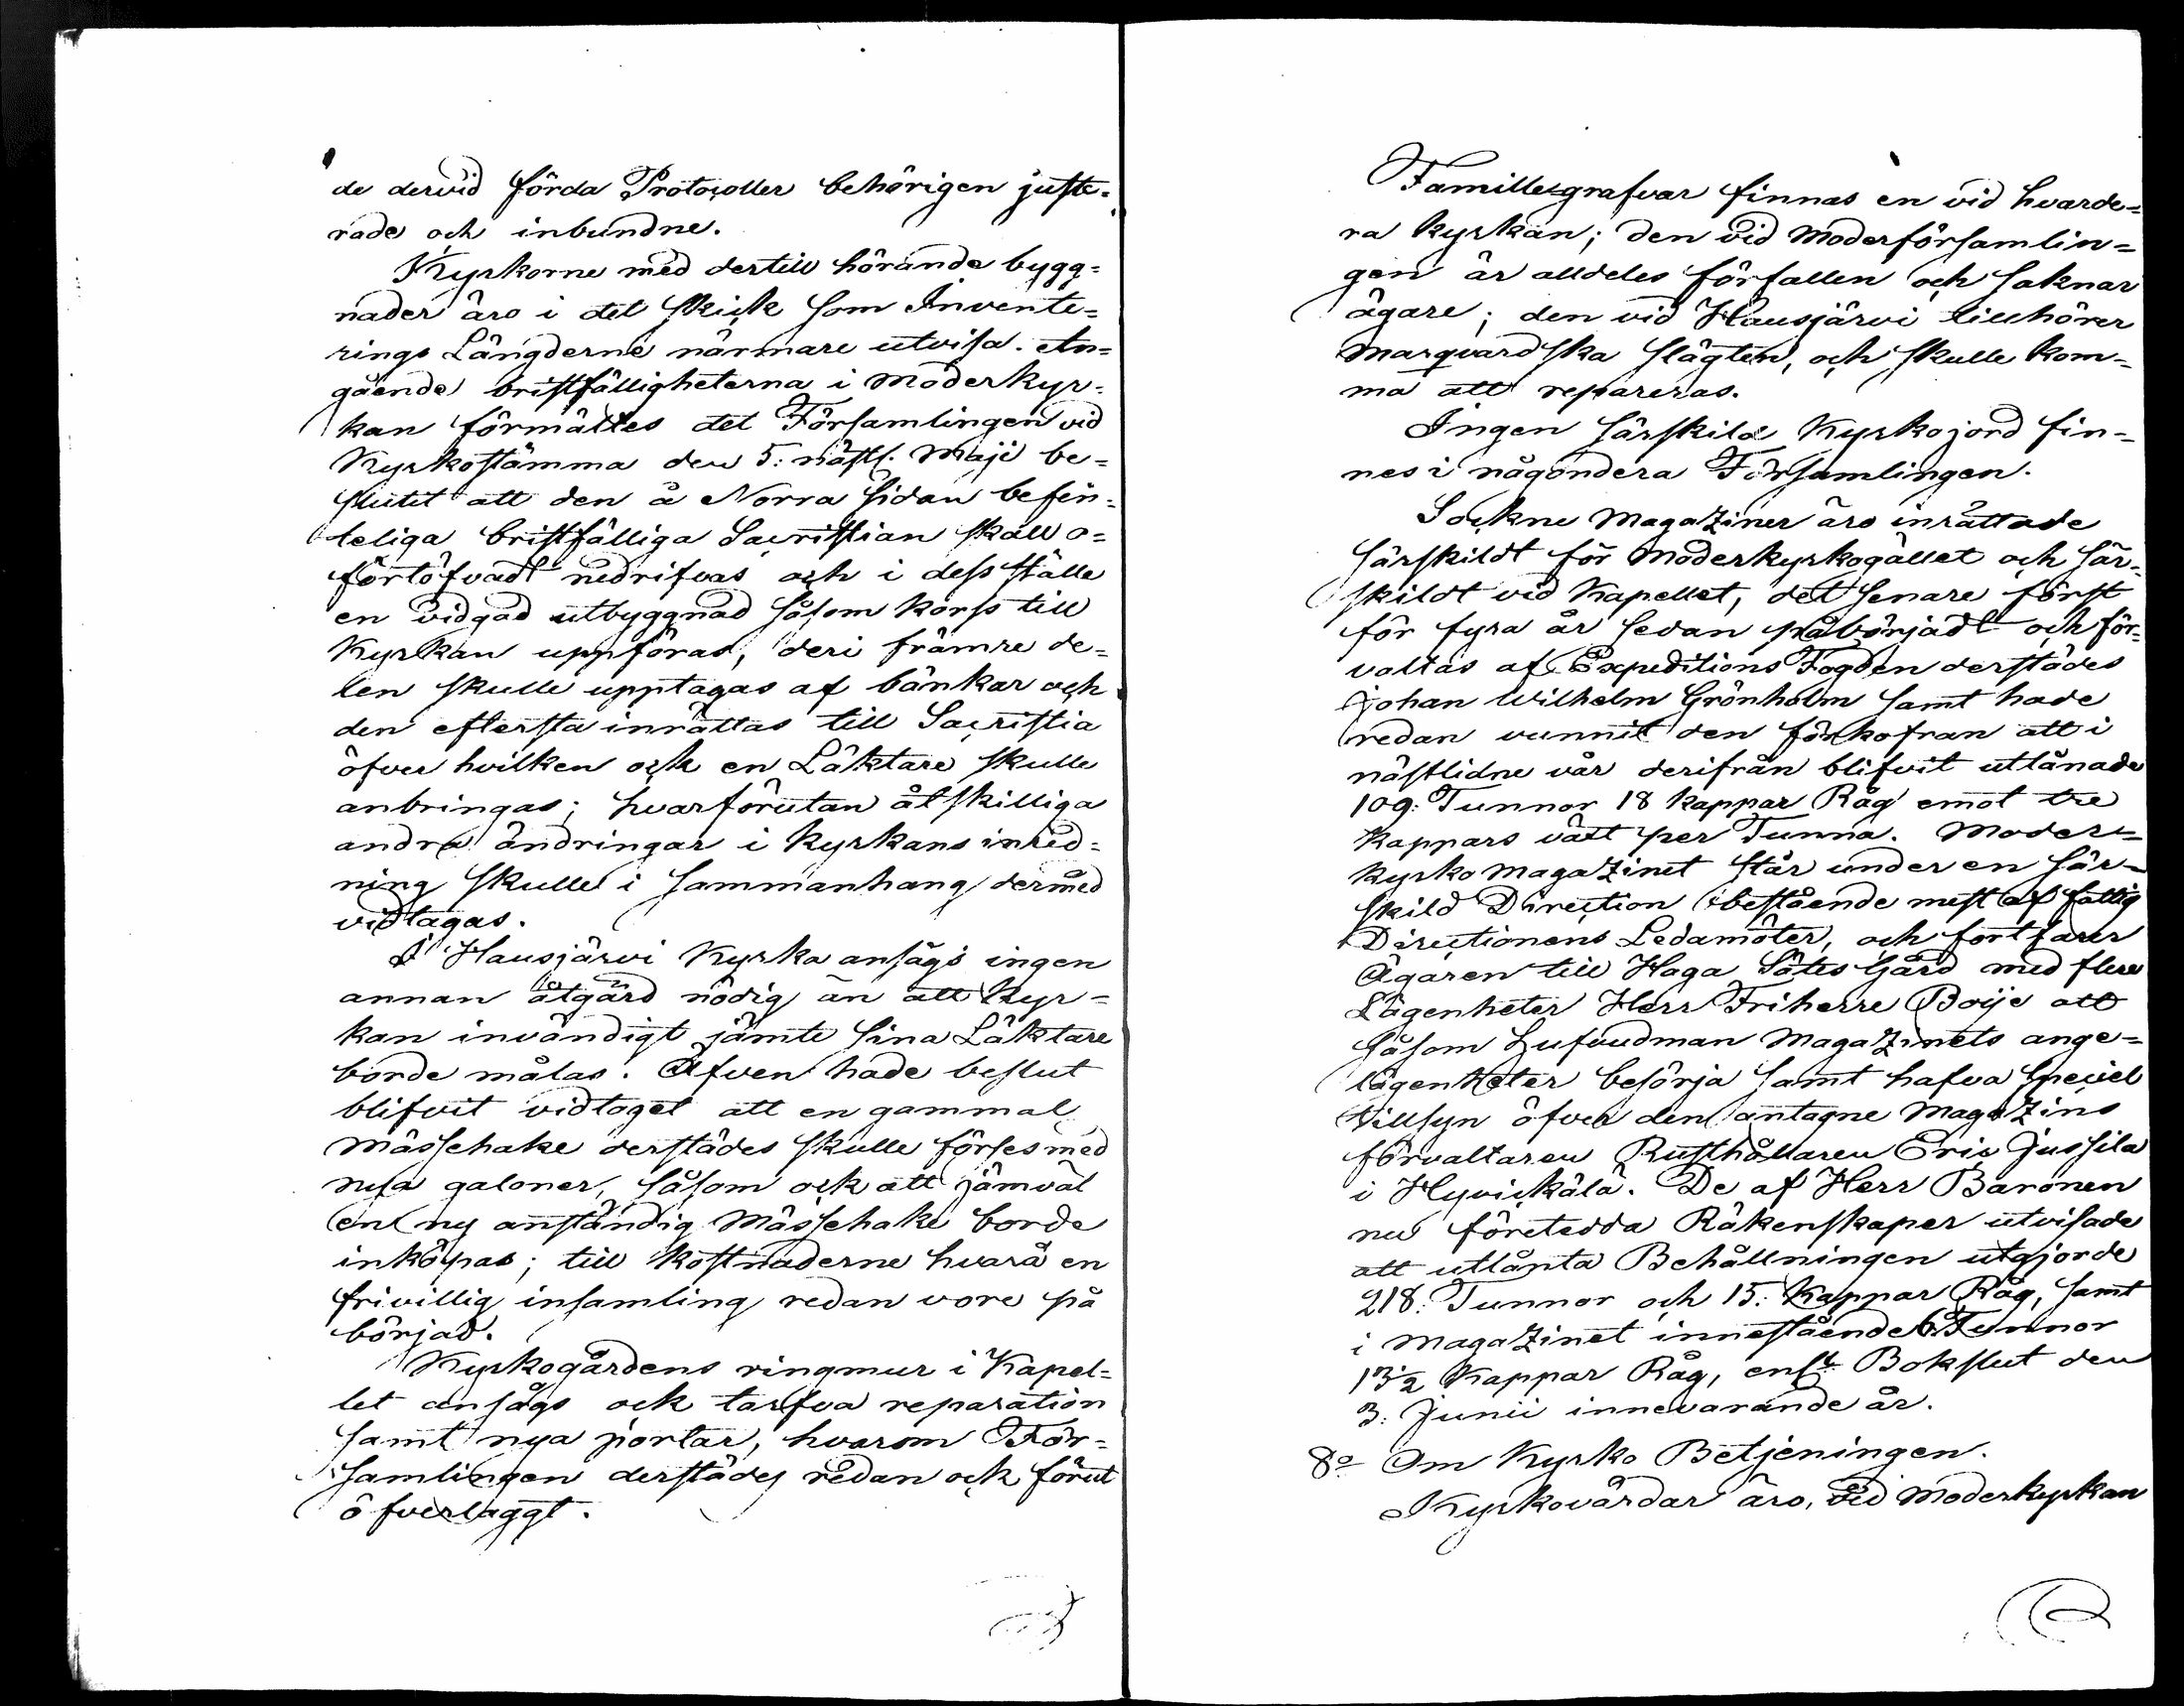 de dervid förda Protocoller behörigen juste-
rade och inbundne.
Kyrkorne med dertill hörande bygg-
nader äro i det skick som Invente-
rings Längderne närmare utvisa. An-
gående bristfälligheterna i Moderkyr-
kan förmältes det Församlingen vid
Kyrkostämma den 5: nästl. Maji be-
slutit att den å Norra sidan befin-
teliga bristfälliga Sacristian skall o-
förtöfvadt nedrifvas och i dess ställe
en vidgad utbyggnad såsom korss till
Kyrkan uppföras, deri främre de-
len skulle upptagas af bänkar och
den eftersta inrättas till Sacristia
öfver hvilken och en Läktare skulle
anbringas; hvarförutan åtskilliga
andra ändringar i Kyrkans inred-
ning skulle i sammanhang dermed
vidtagas.
I Hausjärvi Kyrka ansågs ingen
annan åtgärd nödig än att Kyr-
kan invändigt jämte sina Läktare
borde målas. Äfven hade beslut
blifvit vidtaget att en gammal
Mässehake derstädes skulle förses med
nya galoner, såsom ock att jämväl
en ny anständig Mässehake borde
inköpas; till kostnaderne hvarå en
frivillig insamling redan vore på
börjad.
Kyrkogårdens ringmur i Kapel-
let ansågs ock tarfva reparation
samt nya portar, hvarom För-
samlingen derstädes redan ock förut
öfverlaggt.
Famillegrafvar finnas en vid hvarde-
ra kyrkan; den vid Moderförsamlin-
gen är alldeles förfallen och saknar
ägare; den vid Hausjärvi tillhörer
Marqvardska slägten, och skulle kom-
ma att repareras.
Ingen särskild Kyrkojord fin-
nes i någondera Församlingen.
Sockne Magaziner äro inrättade
särskildt för Moderkyrkogället och sär-
skildt vid Kapellet, det senare först
för fyra år sedan påbörjadt och för-
valtas af Expeditions Fogden derstädes
Johan Wilhelm Grönholm samt hade
redan vunnit den förkofran att i
nästlidne vår derifrån blifvit utlånade
109: Tunnor 18 kappar Råg emot tre
Kappars växt per Tunna. Moder-
kyrko Magazinet står under en sär-
skild Direction bestående mest af fattig
Directionens Ledamöter, och fortfarer
Ägaren till Haga Sätes Gård med flere
Lägenheter Herr Friherre Boije att
såsom Hufvudman Magazinets ange-
lägenheter besörja samt hafva speciel
tillsyn öfver den antagne Magazins
förvaltaren Rusthållaren Eric Jussila
i Hyvickälä. De af Herr Baronen
nu företedda Räkenskaper utvisade
att utlånta Behållningen utgjorde
218: Tunnor och 15: Kappar Råg, samt
i Magazinet innestående 6 Tunnor
13½ Kappar Råg, enlt Bokslut den
3: Junii innevarande år.
8o Om Kyrko Betjeningen.
Kyrkovärdar äro, vid Moderkyrkan